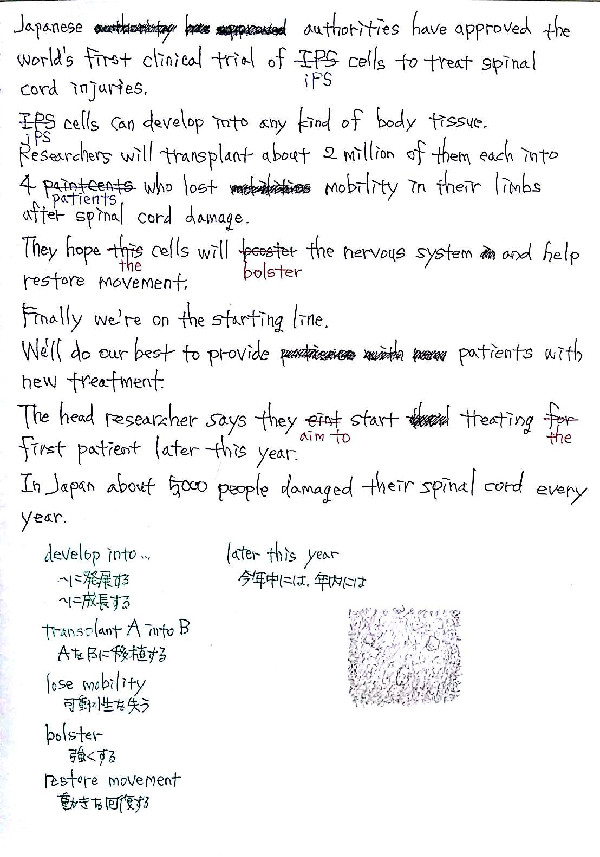 Japanese authorities have approved the
world's first clinical trial of IPS cells to treat spinal
iPS
cord injuries.
IPS cells can develop into any kind of body tissue.
iPS
Researchers will transplant about 2 million of them each into
4 paintcents who lost mobility in their limbs
patients
after spinal cord damage.
They hope this cells will booster the nervous system and help
the bolster
restore movement.
Finally we're on the starting line.
We'll do our best to provide patients with
new treatment.
The head researcher says they eint start treating for
aim to the
first patient later this year.
In Japan about 5000 people damaged their spinal cord every
year.
develop into...
〜に発展する
〜に成長する
transplant A into B
AをBに移植する
lose mobility
可動性を失う
bolster
強くする
restore movement
動きを回復する
later this year
今年中には、年内には